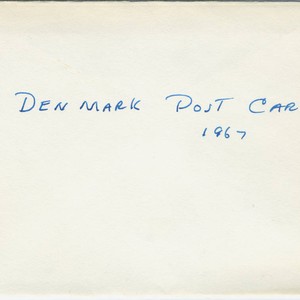 DENMARK POST CAR
1967